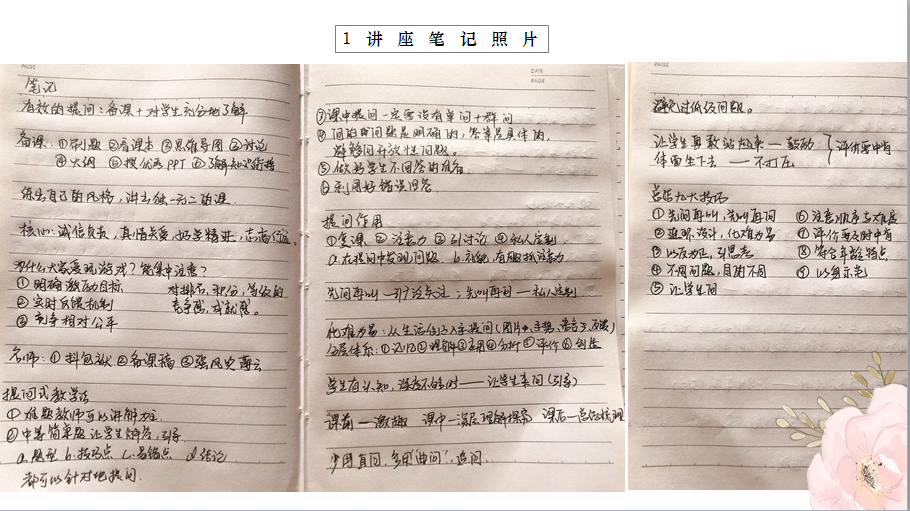 1 讲 座 笔 记 照 片
PAGE
笔记
有效的提问：备课+对学生充分地了解
备课：①刷题 ②看课本 ③思维导图 ④讨论
④大纲 ⑤搜优秀PPT ⑦了解知识衔接
练出自己的风格，讲出独一无二的课.
核心：诚信负责，真情关爱，好学精进，志高行远.
为什么大家爱玩游戏？能集中注意？
①明确激励目标 对排名、积分、等级的
②实时反馈机制 竞争感，成就感。
③竞争相对公平
名师：①抖包袱 ②备课稿 ③强风火
提问式教学法
①难题教师可以讲解为主
②中等简单题让学生解答，引导
a.题型 b.技巧点 c.易错点 d.结论
都可以针对地提问.
DATE
PAGE
③课中提问一定要设有单问+群问
④问的时问题是明确的，答案是具体的，
避免问开放性问题。
⑤做好学生不回答的准备
⑥利用好错误回答.
提问作用
①复课 ②注意力 ③引讨论 ④私人定制.
a.在提问中发现问题 b.有趣抓注意力
先问再叫—引了没关注；先叫再问—私人定制
化难为易：从生活例子入手提问（图片、手势、语言、反馈）
分层体系：①记忆②理解③应用④分析⑤评价⑥创造
学生有认知，深度不够时——让学生来问（引导）
课前—激趣 课中—深层理解探究 课后—总结梳理
少用直问，多用“曲问”，追问.
PAGE
避免过低级问题。
让学生勇敢站起来—鼓励 评价要中肯
体面坐下去 ——不打压
总结九大技巧
①先问再叫，先叫再问 ⑥注意顺序与难度
②巡环设计，化难为易 ⑦评价要及时中肯
③以友为正，引思考 ⑧符合年龄特点
④不同问题，目的不同 ⑨以错示范
⑤让学生问